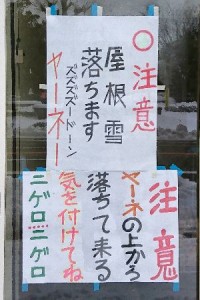 ○注意
屋根雪
落ちます
ズズズードーン
ヤーネー
注意
ヤーネの上から
落ちて来る
気を付けてね
ニゲロニゲロ